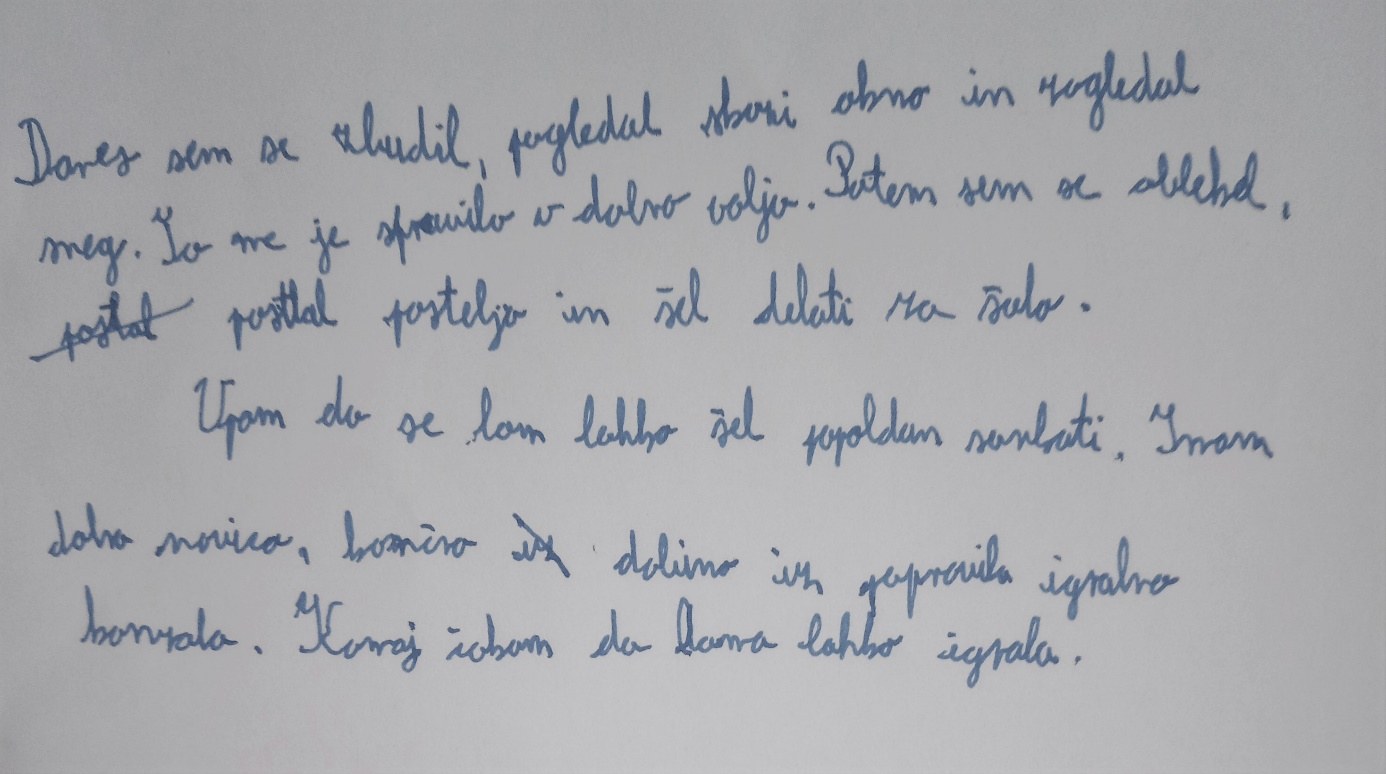 Danes sem se zbudil, pogledal skozi okno in zagledal
sneg. To me je spravilo v dobro voljo. Potem sem se oblekel,
postlal posteljo in šel delati za šolo.
Upam da se bom lahko šel popoldan sankati. Imam
dobro novico, končno dobimo iz popravila igralno
konzolo. Komaj čakam da bova lahko igrala.